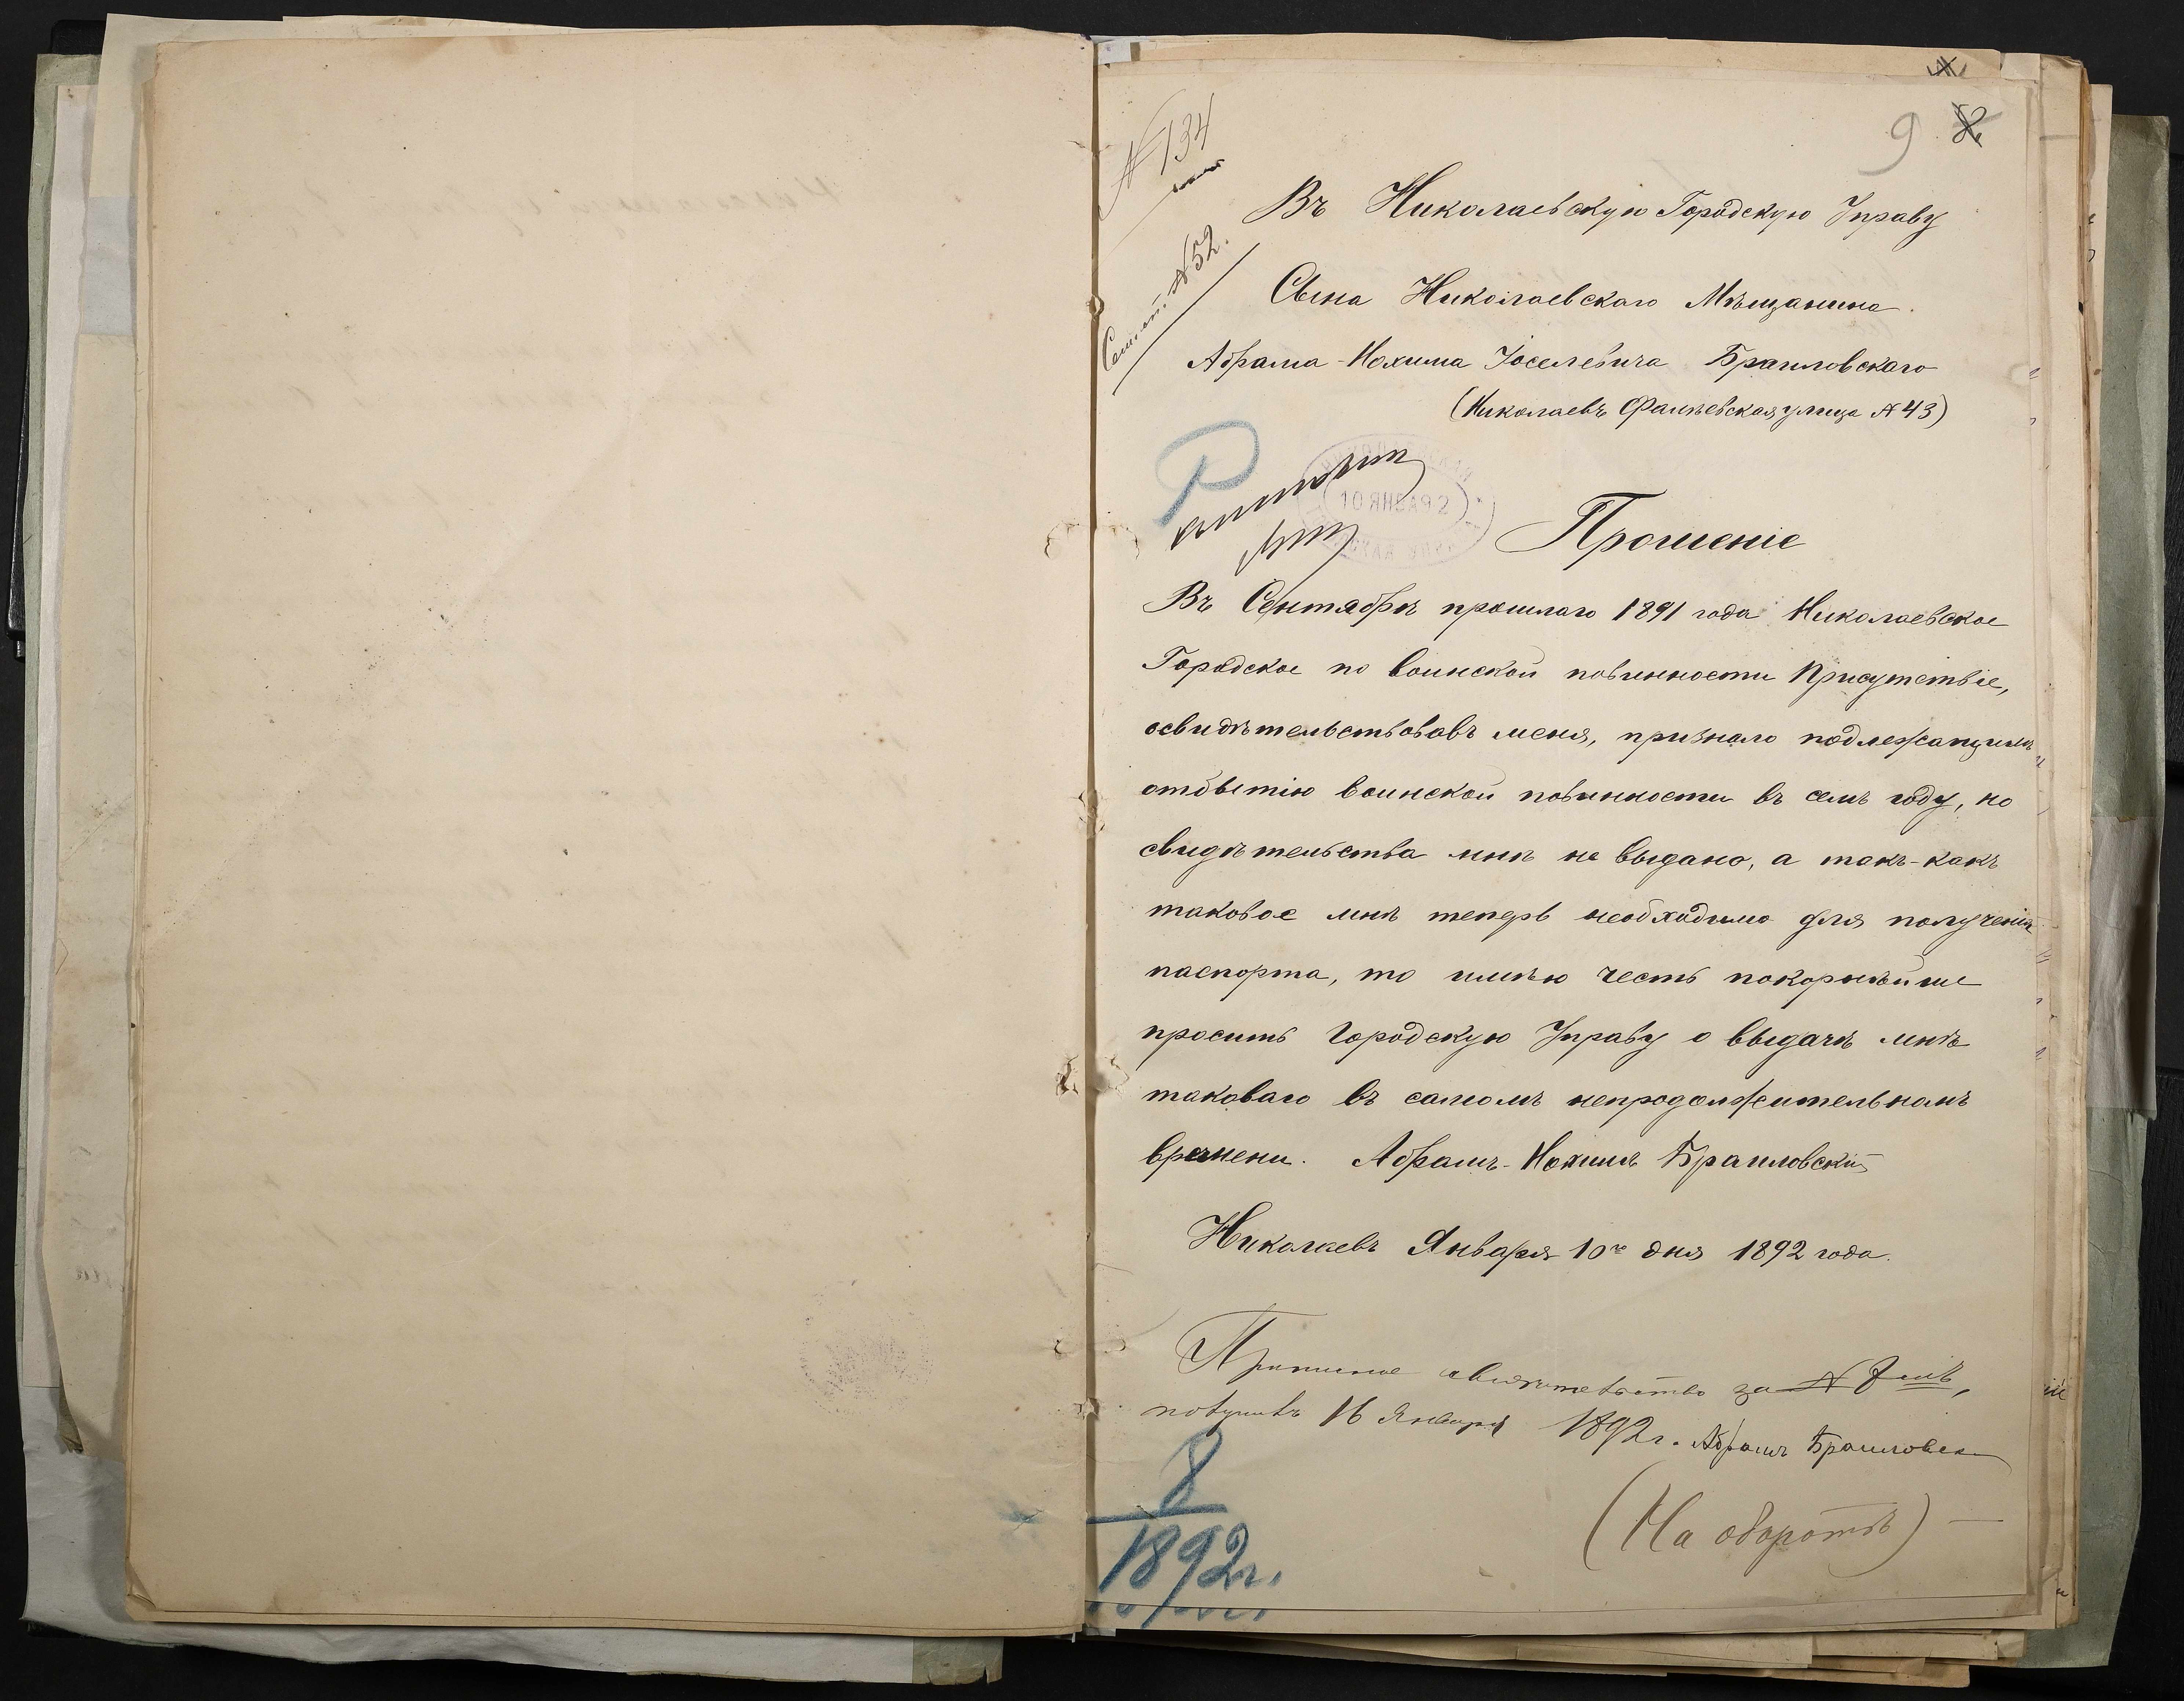 № 134
9
Семейн. № 52.
Въ Николаевскую Городскую Управу
Сына Николаевскаго Мѣщанина
Абрама-Нохима Іоселевича Браиловскаго
(Николаевъ Фалѣевская улица № 43)
10 ЯНВА92
Прошеніе
Въ Сентябрѣ прошлаго 1891 года Николаевское
Городское по воинской повинности Присутствіе,
освидѣтельствовавъ меня, признало подлежащимъ
отбытію воинской повинности въ семъ году, но
свидѣтельства мнѣ не выдано, а такъ-какъ
таковое мнѣ теперь необходимо для полученія
паспорта, то имѣю честь покорнѣйше
просить Городскую Управу о выдачѣ мнѣ
таковаго въ самомъ непродолжительномъ
времени. Абрамъ-Нохимъ Браиловскій
Николаевъ Января 10го дня 1892 года.
Приписное свидѣтельство за №
получилъ 16 Января 1892 г. Абрамъ Браиловск
8
1892 г.
(На оборотѣ)